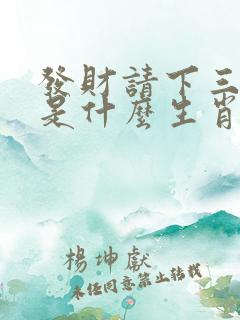 發財請下三
是什麼生肖
楊坤獻
未經同意禁止轉載